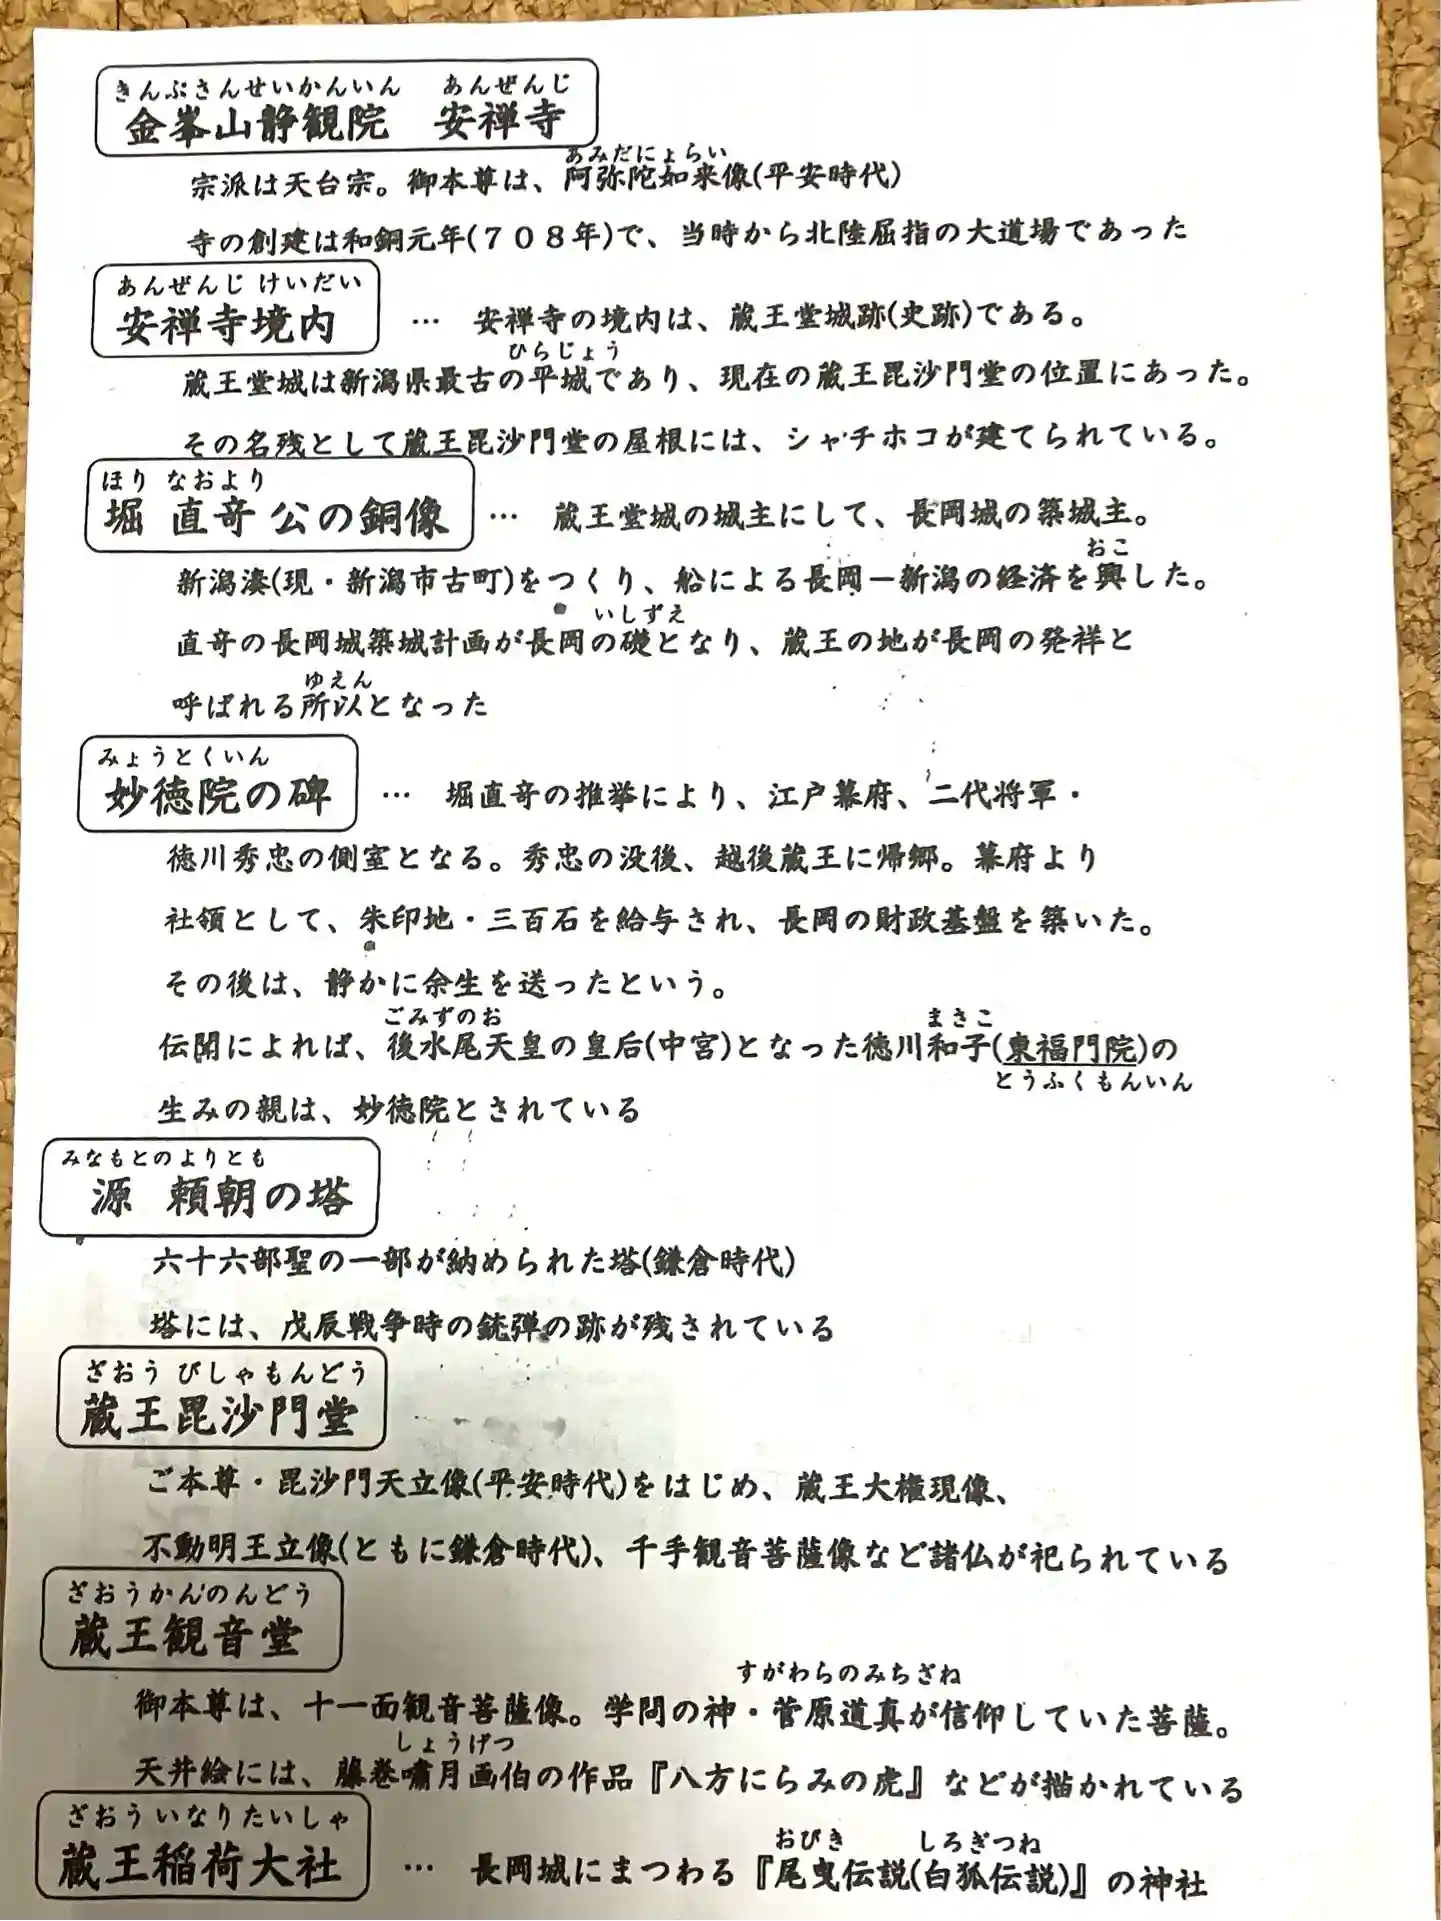 きんぷさんせいかんいん　あんぜんじ
金峯山静観院　安禅寺
あみだにょらい
宗派は天台宗。御本尊は、阿弥陀如来像(平安時代)
寺の創建は和銅元年(７０８年)で、当時から北陸屈指の大道場であった
あんぜんじ けいだい
安禅寺境内　…　安禅寺の境内は、蔵王堂城跡(史跡)である。
ひらじょう
蔵王堂城は新潟県最古の平城であり、現在の蔵王毘沙門堂の位置にあった。
その名残として蔵王毘沙門堂の屋根には、シャチホコが建てられている。
ほり なおより
堀 直竒 公の銅像　…　蔵王堂城の城主にして、長岡城の築城主。
おこ
新潟湊(現・新潟市古町)をつくり、船による長岡－新潟の経済を興した。
いしずえ
直竒の長岡城築城計画が長岡の礎となり、蔵王の地が長岡の発祥と
ゆえん
呼ばれる所以となった
みょうとくいん
妙徳院の碑　…　堀直竒の推挙により、江戸幕府、二代将軍・
徳川秀忠の側室となる。秀忠の没後、越後蔵王に帰郷。幕府より
社領として、朱印地・三百石を給与され、長岡の財政基盤を築いた。
その後は、静かに余生を送ったという。
ごみずのお　まさこ
伝聞によれば、後水尾天皇の皇后(中宮)となった徳川和子(東福門院)の
とうふくもんいん
生みの親は、妙徳院とされている
みなもとのよりとも
源 頼朝の塔
六十六部聖の一部が納められた塔(鎌倉時代)
塔には、戊辰戦争時の銃弾の跡が残されている
ざおう びしゃもんどう
蔵王毘沙門堂
ご本尊・毘沙門天立像(平安時代)をはじめ、蔵王大権現像、
不動明王立像(ともに鎌倉時代)、千手観音菩薩像など諸仏が祀られている
ざおうかんのんどう
蔵王観音堂
すがわらのみちざね
御本尊は、十一面観音菩薩像。学問の神・菅原道真が信仰していた菩薩。
しょうげつ
天井絵には、藤巻嘯月画伯の作品『八方にらみの虎』などが描かれている
ざおういなりたいしゃ
おびき　しろぎつね
蔵王稲荷大社　…　長岡城にまつわる『尾曳伝説(白狐伝説)』の神社